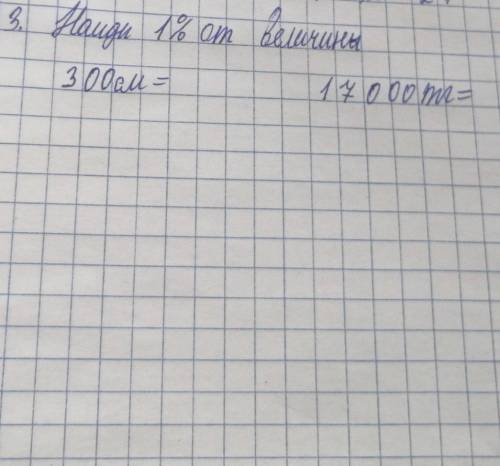 3. Найди 1% от величины
300см= 17000тг=